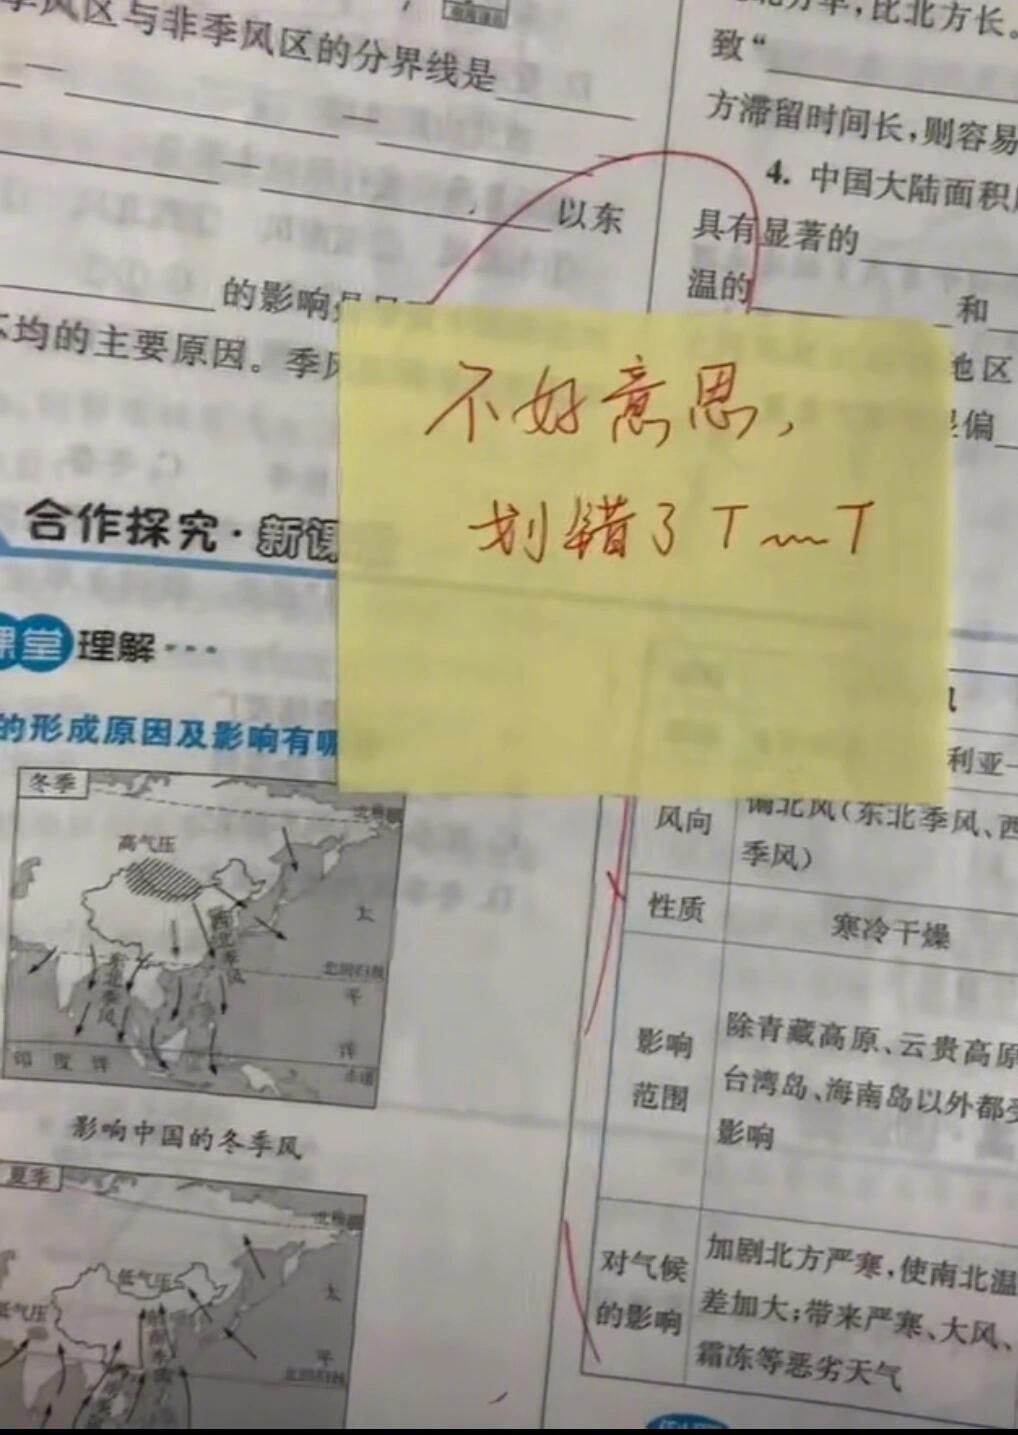 季风区与非季风区的分界线是
以东
的影响是
不均的主要原因。季风
合作探究·新课
课堂 理解…
的形成原因及影响有哪
冬季
高气压
北极圈
太
西北季风
东北季风
北回归线
平
洋
印 度 洋
赤道
影响中国的冬季风
夏季
北极圈
低气压
低气压
太
平
北回归线
,比北方长。
致“
方滞留时间长,则容易
4. 中国大陆面积
具有显著的
温的 和
地区
偏
不好意思,
划错了T﹏T
利亚
风向 偏北风(东北季风、西
季风)
性质 寒冷干燥
影响
范围
除青藏高原、云贵高原
台湾岛、海南岛以外都受
影响
对气候
的影响
加剧北方严寒,使南北温
差加大;带来严寒、大风、
霜冻等恶劣天气